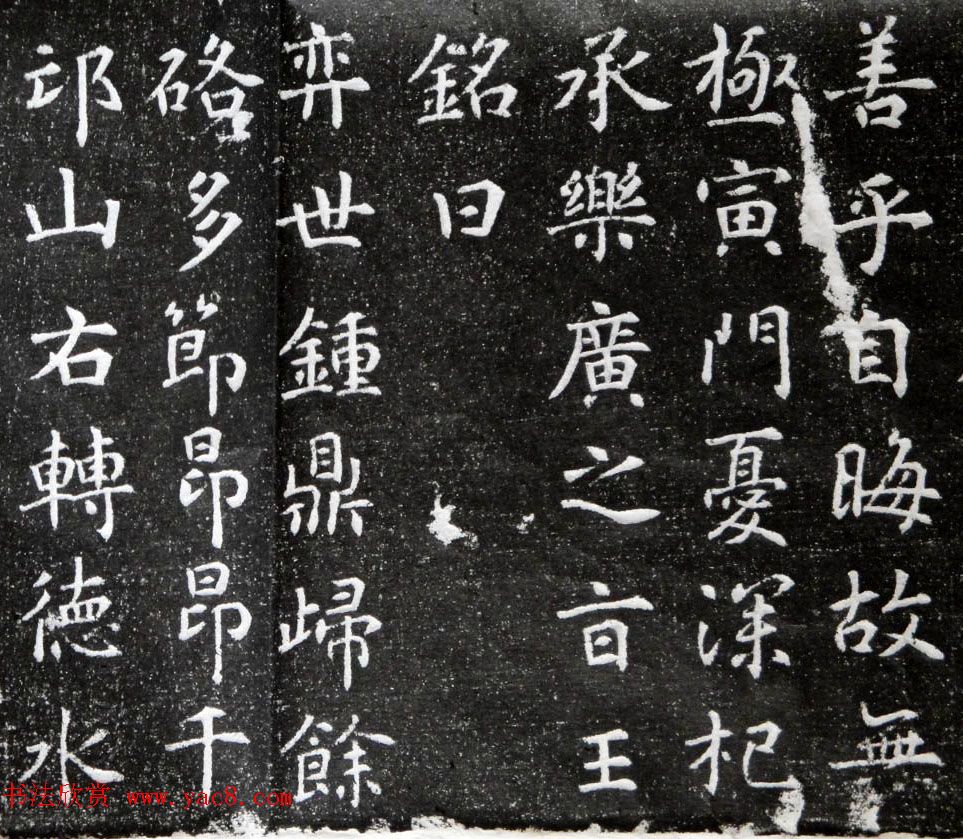 善乎自晦故無
極寅門憂深杞
承樂廣之旨王
銘曰
弈世鍾鼎歸餘
硌多節昂昂千
邙山右轉德水
书法欣赏 www.yac8.com